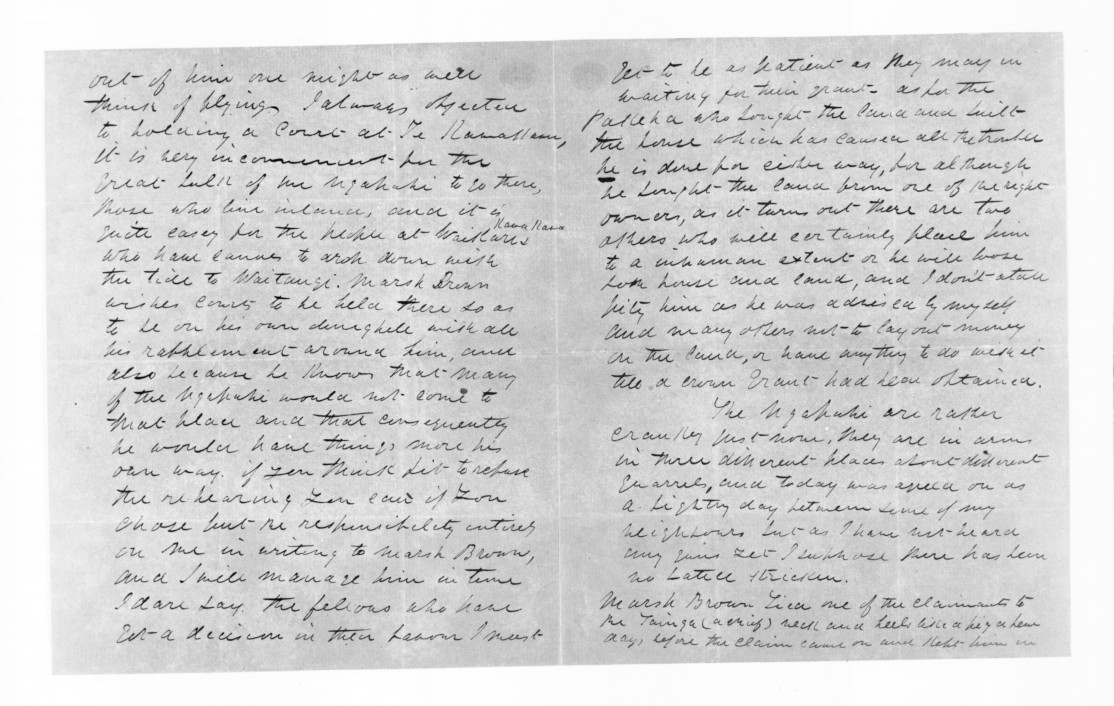 out of him one might as well
think of flying. I always objected
to holding a Court at Te Kawakawa,
it is very inconvenient for the
great bulk of the Ngapuhi to go there,
those who live inland, and it is
quite easy for the people at Waikare &
Kawa Kawa
who have canoes to down with
the tide to Waitangi. Marsh Brown
wishes Courts to be held there so as
to be on his own dunghill with all
his rabblement around him, and
also because he knows that many
of the Ngapuhi would not come to
that place and that consequently
he would have things more his
own way. if you think fit to refuse
the rehearing you can if you
chose put the responsibility entirely
on me in writing to Marsh Brown,
and I will manage him in time
I dare say. the fellows who have
got a decision in their favour I must
get to be as patient as they may in
waiting for their grant. as for the
Pakeha who bought the land and built
the house which has caused all the trouble
he is done for either way, for although
he bought the land from one of the right
owners, as it turns out there are two
others who will certainly him
to a inhuman extent or he will loose
both house and land, and I don't atall
pity him as he was advised by myself
and many others not to lay out money
on the land, or have anything to do with it
till a crown Grant had been obtained.
The Ngapuhi are rather
cranky just now, they are in arms
in three different places about different
quarrels, and today was agreed on as
a fighting day between some of my
neighbours but as I have not heard
any guns yet I suppose there has been
no battle stricken.
Marsh Brown tied one of the claimants to
the Tainga (a chief) neck and heels like a pig a few
days before the claim came on and kept him in